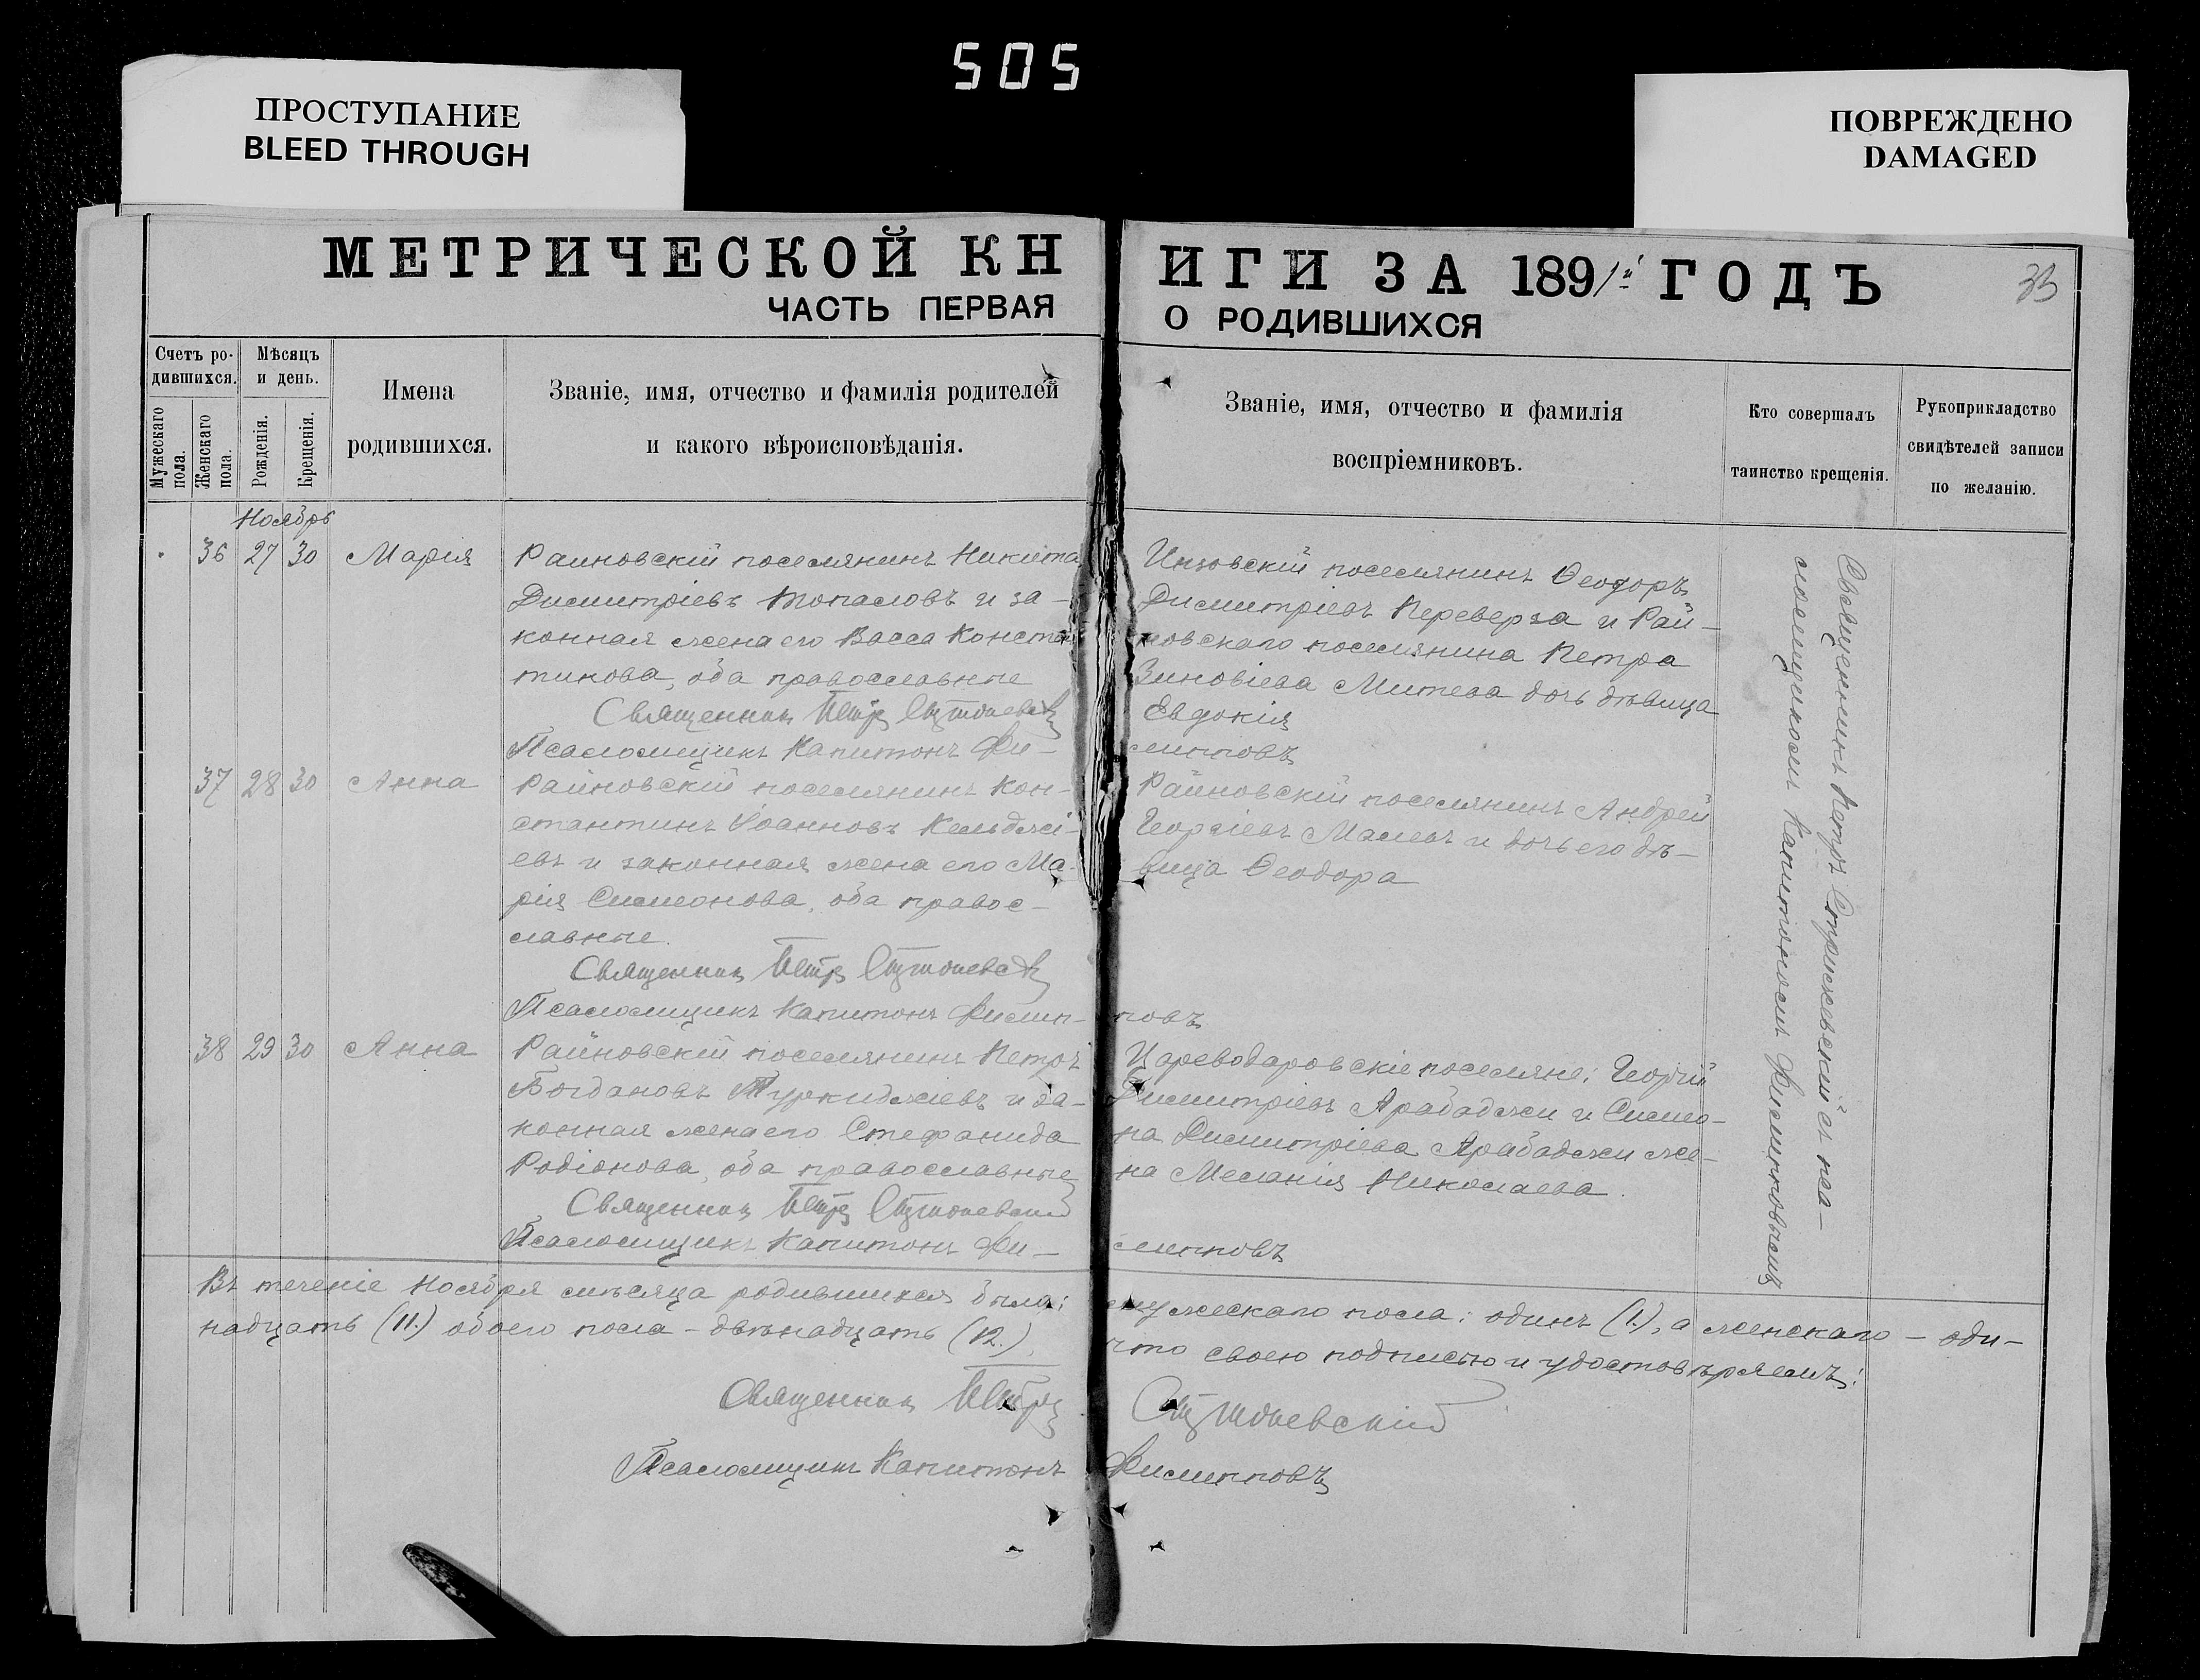 505
ПРОСТУПАНИЕ
BLEED THROUGH
ПОВРЕЖДЕНО
DAMAGED
МЕТРИЧЕСКОЙ КН
ИГИ ЗА 1891й ГОДЪ
33
ЧАСТЬ ПЕРВАЯ
О РОДИВШИХСЯ
Счетъ ро-
дившихся.
Мужескаго
пола.
Женскаго
пола.
Мѣсяцъ
и день.
Рожденія.
Крещенія.
Имена
родившихся.
Званіе, имя, отчество и фамилія родителей
и какого вѣроисповѣданія.
Званіе, имя, отчество и фамилія
воспріемниковъ.
Кто совершалъ
таинство крещенія.
Рукоприкладство
свидѣтелей записи
по желанію.
Ноябрь
36 27 30 Марія
Раиновскій поселянинъ Никита
Димитріевъ Топаловъ и за-
конная жена его Васса Констан
тинова, оба православные
Священникъ Петръ
Псаломщикъ Капитонъ Фи-
Инзовскій поселянинъ Ѳеодоръ
Димитріевъ Переверза и Рай-
новскаго поселянина Петра
Зиновіева Митева дочь дѣвица
Евдокія
липповъ
37 28 30 Анна
Райновскій поселянинъ Кон-
стантинъ Іоанновъ Кельджі-
евъ и законная жена его Ма-
рія Симеонова, оба правос-
славные.
Священникъ Петръ
Псаломщикъ Капитонъ Филип-
Райновскій поселянинъ Андрей
Георгіевъ Малевъ и дочь его дѣ-
вица Ѳеодора
повъ
38 29 30 Анна
Райновскій поселянинъ Петръ
Богдановъ Туркиджіевъ и за-
конная жена его Стефанида
Родіонова, оба православные
Священникъ Петръ
Псаломщикъ Капитонъ Фи-
Цареводаровскіе поселяне: Георгій
Димитріевъ Арабаджи и Симео-
на Димитріева Арабаджи же-
на Меланія Николаева.
липповъ
Священникъ Петръ Стрижевскій съ пса-
ломщикомъ Капитономъ Филипповымъ
Въ теченіе Ноября мѣсяца родившихся было:
мужескаго пола: одинъ (1.), а женскаго - оди-
надцать (11.) обоего пола - двѣнадцать (12.)
что своею подписью и удостовѣряемъ:
Священникъ Петръ
Псаломщикъ Капитонъ
Филипповъ